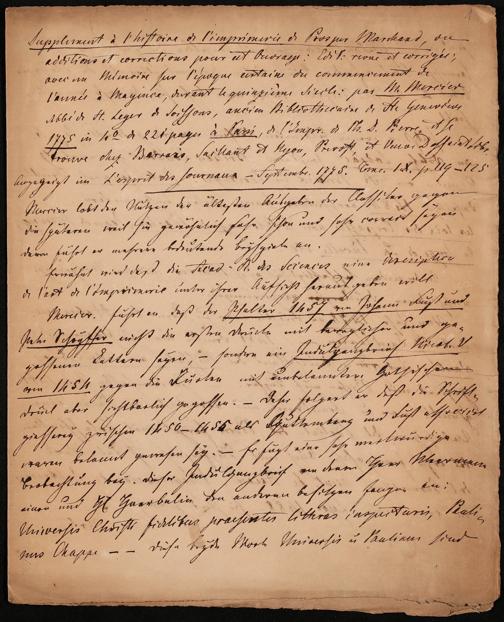 Supplement à l'histoire de l'imprimerie de Prosper Marchand, ou
additions et corrections pour cet Ouvrage: Edit: revue et corrigée;
avec un Mémoire sur l'époque certaine du commencement de
l'année à Mayence, durant le quinzième Siecle: par M. Mercier
Abbé de St. Leger de Soissons, ancien Bibliothecaire de St. Genevieve
1775 in 4o de 221 pages à Paris, de l'Impr. de Ph. D. et se
trouve chez Barrois, Saillant et Nyon,
angezeigt im L'esprit des Journaux - Septembr. 1775. Tom. p. 119-125
Mercier lobt den Nutzen der ältesten Ausgaben der Classiker gegen
die späteren weil sie gewöhnlich sehr schön und sehr correct seyen
dann führt er mehrere bedeutende Beyspiele an.
Erwähnt wird daß die Acad. R. des Sciences eine Description
de l'art de l'Imprimerie unter ihrer Aufsicht herausgeben will
Mercier führt an daß der Psalter 1457 von Johann Fust und
Peter Schöffer nicht die ersten Drucke mit beweglichen und ge-
gossenen Lettern seyen, - sondern ein Indulgenzbrief Nicol. V
von 1454 gegen die Türken mit Gothischem
Druck aber gegossen. - Daher folgert er daß die Schrift-
gießerey zwischen 1450-1455 als Guttemberg und Fust
waren bekannt gewesen sey. - Er sagt eine sehr merkwürdige
Beobachtung bey. dieser Indulgenzbrief von denen Herr Meermann
einen und H. den anderen besitzen fangen an:
Universis Christi fidelibus praesentes litteras inspecturis, Pauli-
nus Chappe -- diese beyde Worte Universis u Paulinus sind